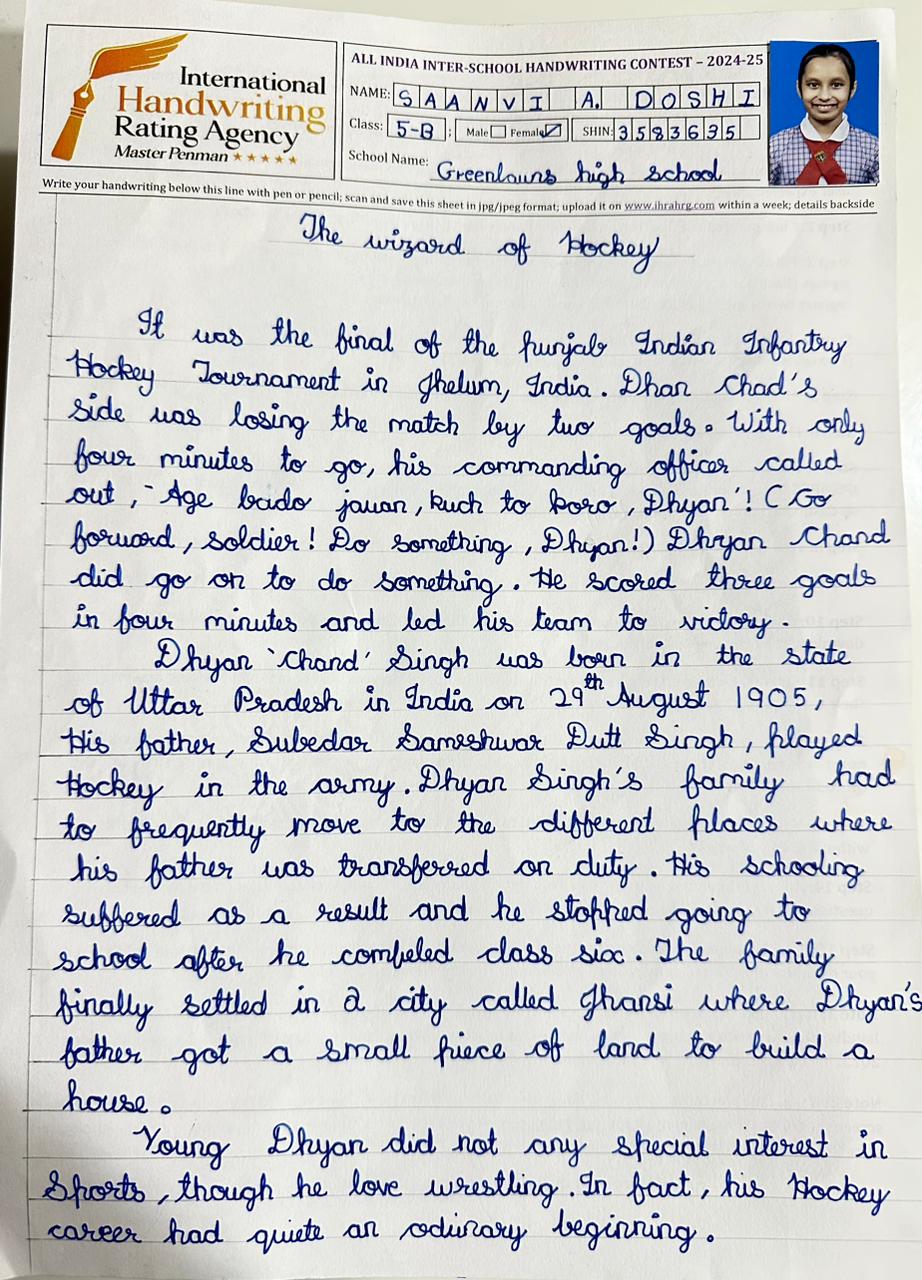 International
Handwriting
Rating Agency
Master Penman ★★★★★
ALL INDIA INTER-SCHOOL HANDWRITING CONTEST – 2024-25
NAME: SAANVI A. DOSHI
Class: 5-B ; Male Female SHIN: 3583635
School Name: Greenlauns high school
Write your handwriting below this line with pen or pencil; scan and save this sheet in jpg/jpeg format; upload it on www.ihrahrg.com within a week; details backside
The wizard of Hockey
It was the final of the punjab Indian Infantry
Hockey Tournament in Jhelum, India. Dhan Chad's
side was losing the match by two goals. With only
four minutes to go, his commanding officer called
out, - Age bado jauan, kuch to koro, Dhyan'! (Go
forward, soldier! Do something, Dhyan!) Dhyan Chand
did go on to do something. He scored three goals
in four minutes and led his team to victory.
Dhyan 'Chand' Singh was born in the state
of Uttar Pradesh in India on 29th August 1905,
His father, Subedar Sameshwar Dutt Singh, played
Hockey in the army. Dhyan Singh's family had
to frequently move to the different places where
his father was transferred on duty. His schooling
suffered as a result and he stopped going to
school after he compleled class six. The family
finally settled in a city called Jhansi where Dhyan's
father got a small piece of land to build a
house.
Young Dhyan did not any special interest in
Sports, though he love wrestling. In fact, his Hockey
career had quiete an odinary beginning.